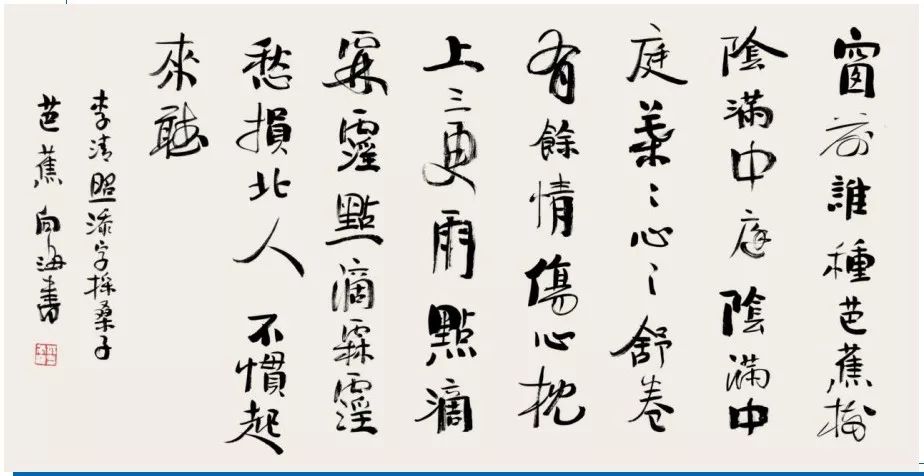 窗前誰種芭蕉樹
陰滿中庭陰滿中
庭葉〻心〻舒卷
有餘情傷心枕
上三更雨點滴
霖霪點滴霖霪
愁損北人不慣起
來聽
李清照添字採桑子
芭蕉向海書